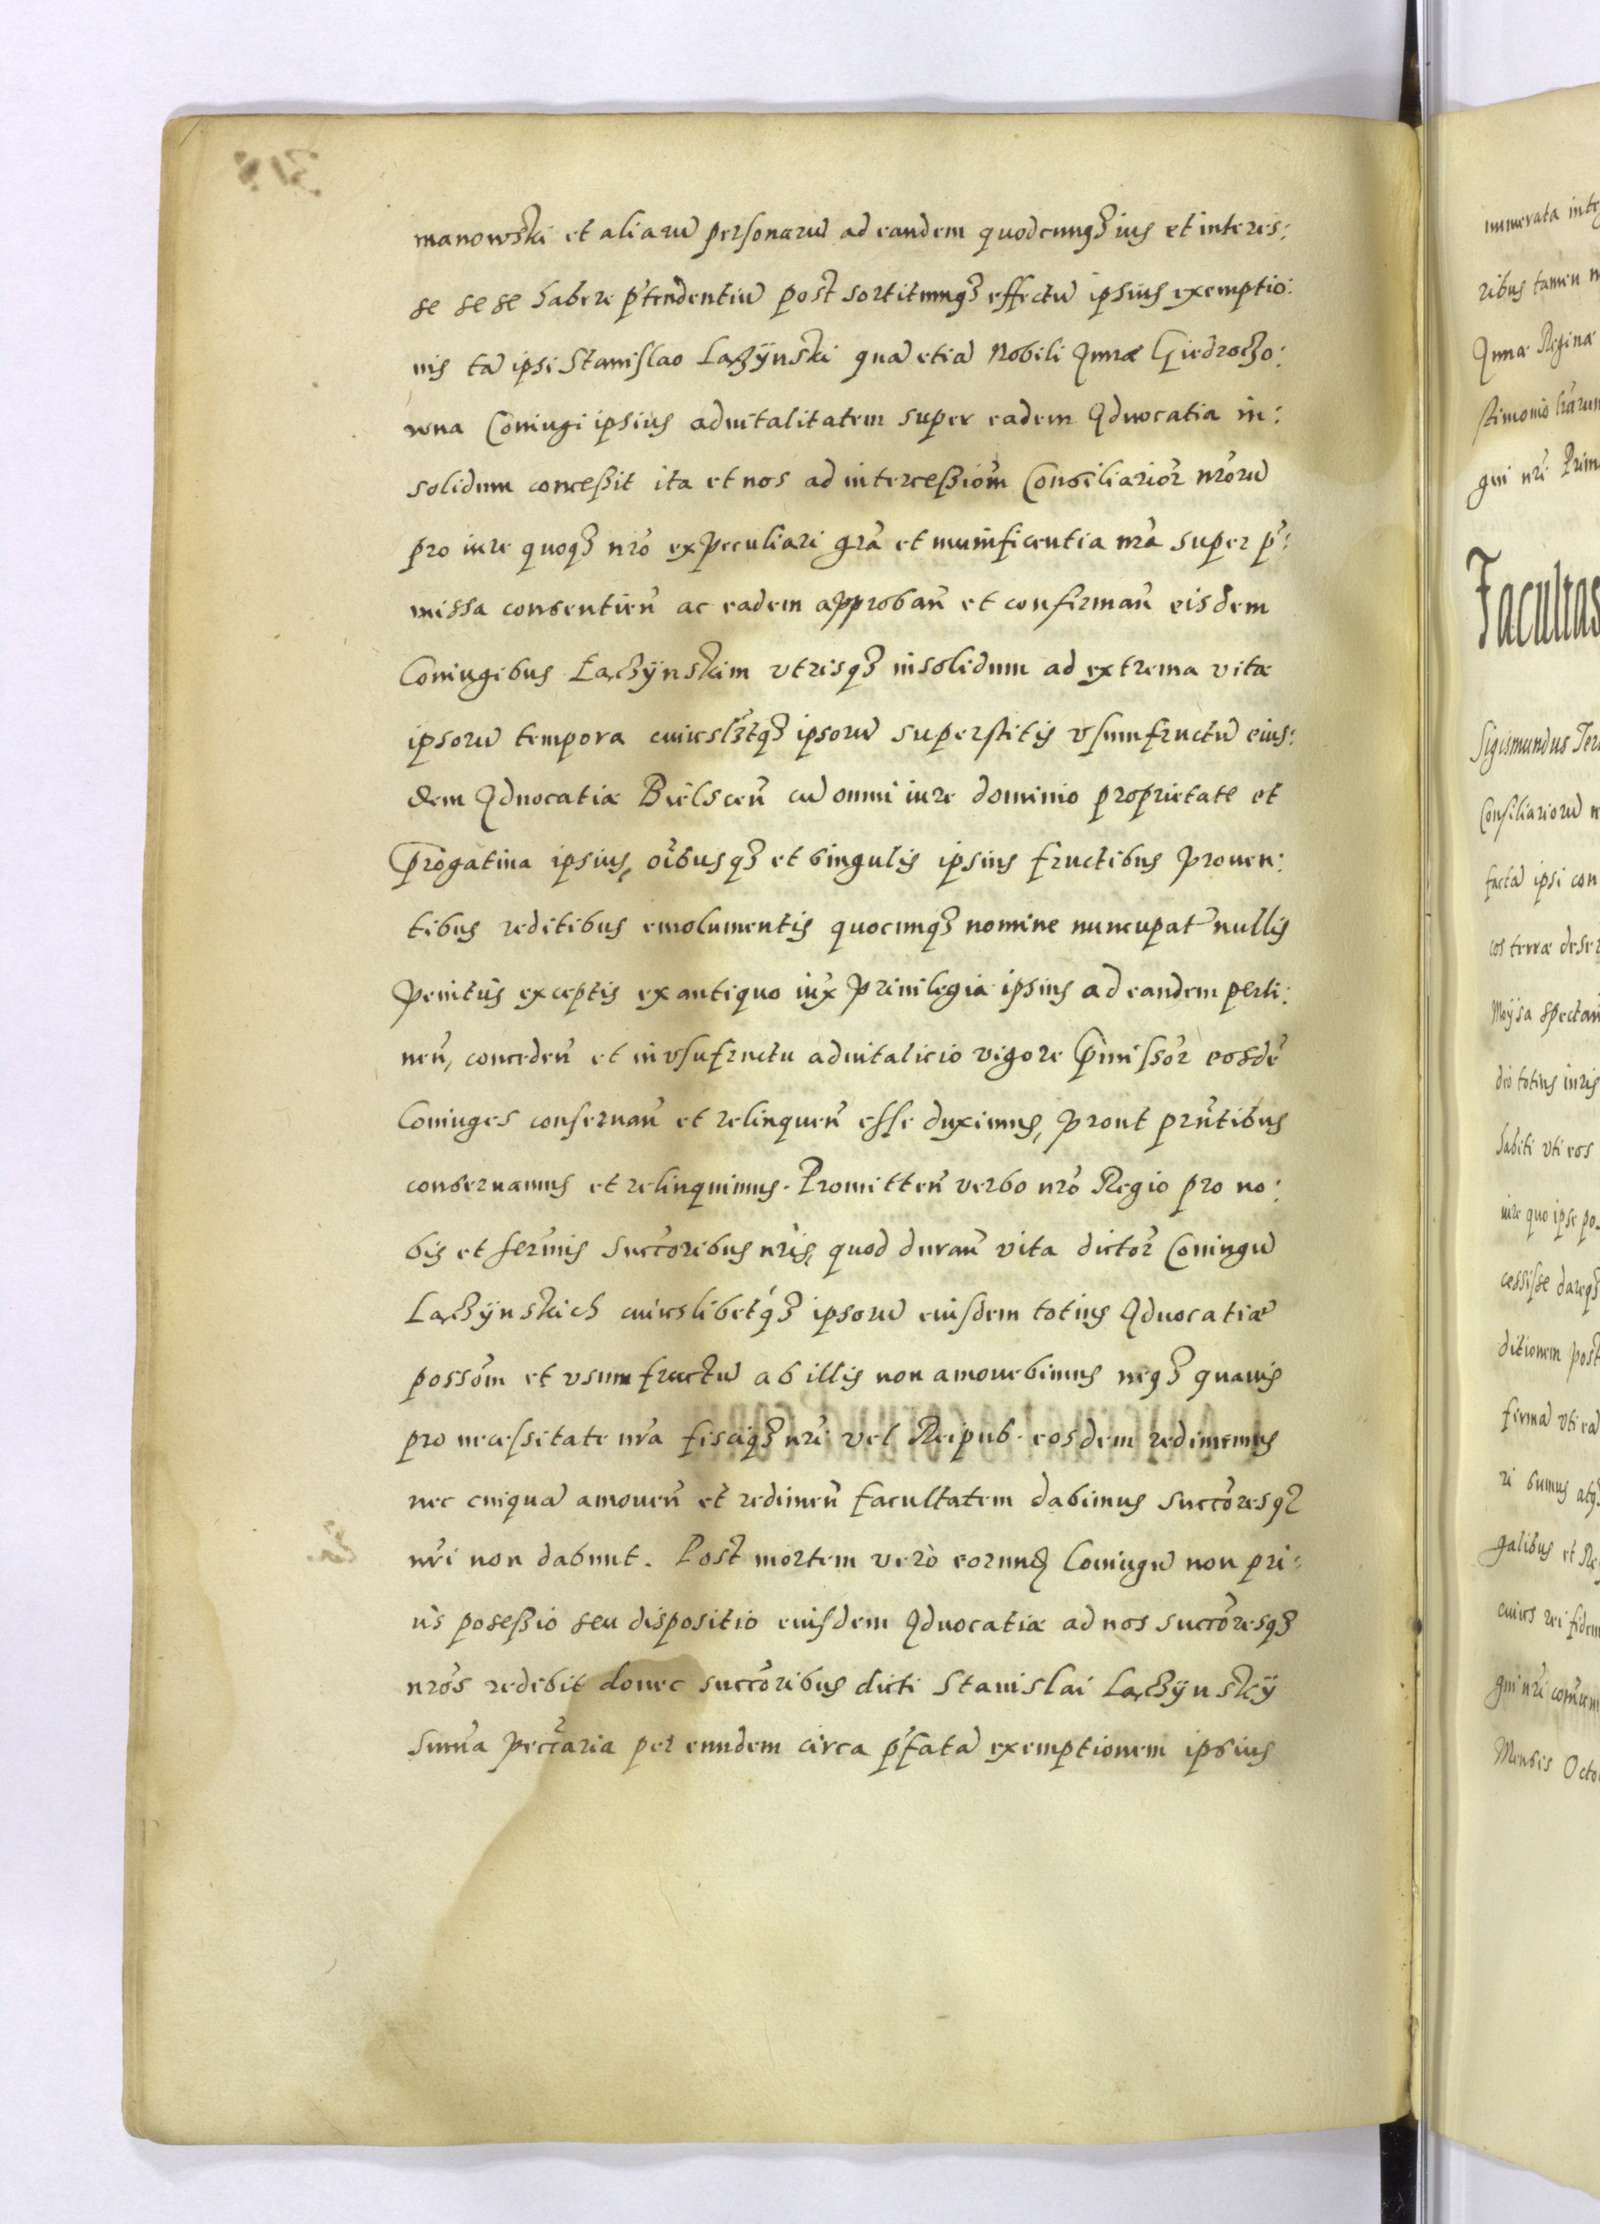 manowski et aliarū personarū ad eandem quodcunqꝫ ius et interes:
se se se habere p̃tendentiū post sortitumqꝫ effectū ipsius exemptio:
nis tā ipsi Stanislao Laczÿnski quā etiā Nobili Annæ Giedroczo:
wna Coniugi ipsius aduitalitatem super eadem Aduocatia in:
solidum conceßit ita et nos ad interceßiom̃ Consiliarior̃ nr̃orū
pro iure quoqꝫ nr̃o ex peculiari gr̃a et munificentia nr̃a super p̃:
missa consentien̄ ac eadem approban̄ et confirman̄ eisdem
Coniugibus Laczÿnskim vtrisqꝫ insolidum ad extrema vitæ
ipsorū tempora cuiusl̃ꝫtqꝫ ipsorū superstitis vsumfructū eius:
dem Aduocatiæ Bielscen̄ cū omni iure dominio proprietate et
p̃rogatiua ipsius, oĩbusqꝫ et singulis ipsius fructibus prouen:
tibus reditibus emolumentis quocunqꝫ nomine nuncupat̃ nullis
penitus exceptis ex antiquo iux̃ priuilegia ipsius ad eandem perti:
nen̄, conceden̄ et in vsufructu aduitalicio vigore p̃missor̃ eosdē
Coniuges conseruan̄ et relinquen̄ esse duximus, prout prñtibus
conseruamus et relinquimus. Promitten̄ verbo nr̃o Regio pro no:
bis et ser̃mis succ̃oribus nr̃is, quod duran̄ vita dictor̃ Coniugū
Laczÿnskich cuiuslibetqꝫ ipsorū eiusdem totius Aduocatiæ
possom̃ et vsumfructū ab illis non amouebimus neqꝫ quauis
pro necessitate nr̃a fisciqꝫ nr̃i vel Reipub. eosdem redimemus
nec cuiquā amouen̄ et redimen̄ facultatem dabimus succ̃oresqꝫ
nr̃i non dabunt. Post mortem verò eorundē Coniugū non pri:
us poseßio seu dispositio eiusdem Aduocatiæ ad nos succ̃oresqꝫ
nr̃os redibit donec succ̃oribus dicti Stanislai Laczÿnskÿ
sum̃a pecc̃aria per eundem circa p̃fatā exemptionem ipsius
numerata
ribus tamen
Annæ Reginæ
stimonio
gni nr̃i
Facultas
Sigismundus
Consiliariorū
factā ipsi con
cos terræ
Moÿsa spectan̄
dio totius iuris
habiti vti eos
iure quo ipse po
cessisse dareqꝫ
ditionem post
firmā vti eā
ri sumus atqꝫ
galibus et
cuius rei fidem
gni nr̃i
Mensis Octo